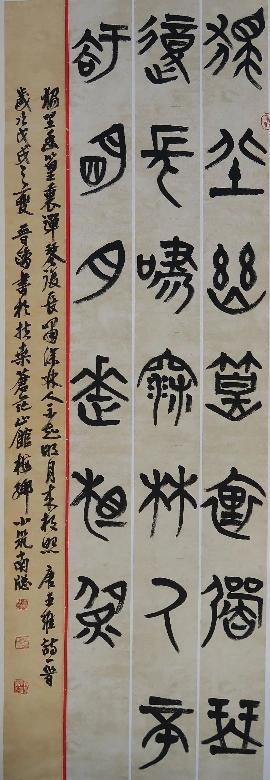 獨坐幽篁裏彈琴
復長嘯深林人不
知明月來相照
獨坐幽篁裏彈琴復長嘯深林人不知明月來相照 唐王維詩一首
歲次戊戌之夏 書於扶桑 山館 小筑南窗